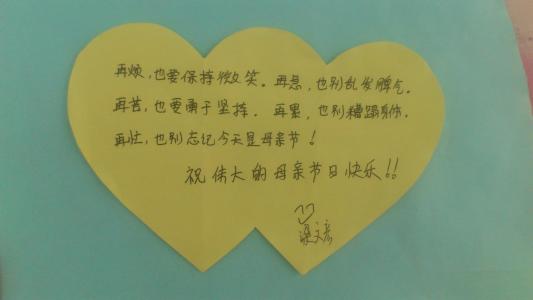 再烦，也要保持微笑。再急，也别乱发脾气。
再苦，也要勇于坚持。再累，也别糟蹋身体。
再忙，也别忘记今天是母亲节！
祝伟大的母亲节日快乐！！
文彦